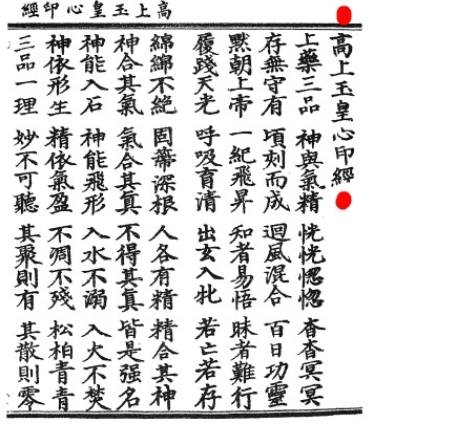 高上玉皇心印經
高上玉皇心印經
上藥三品 神與氣精 恍恍惚惚 杳杳冥冥
存無守有 頃刻而成 迴風混合 百日功靈
默朝上帝 一紀飛昇 知者易悟 昧者難行
履踐天光 呼吸育清 出玄入牝 若亡若存
綿綿不絕 固蔕深根 人各有精 精合其神
神合其氣 氣合其真 不得其真 皆是强名
神能入石 神能飛形 入水不溺 入火不焚
神依形生 精依氣盈 不凋不殘 松柏青青
三品一理 妙不可聽 其聚則有 其散則零